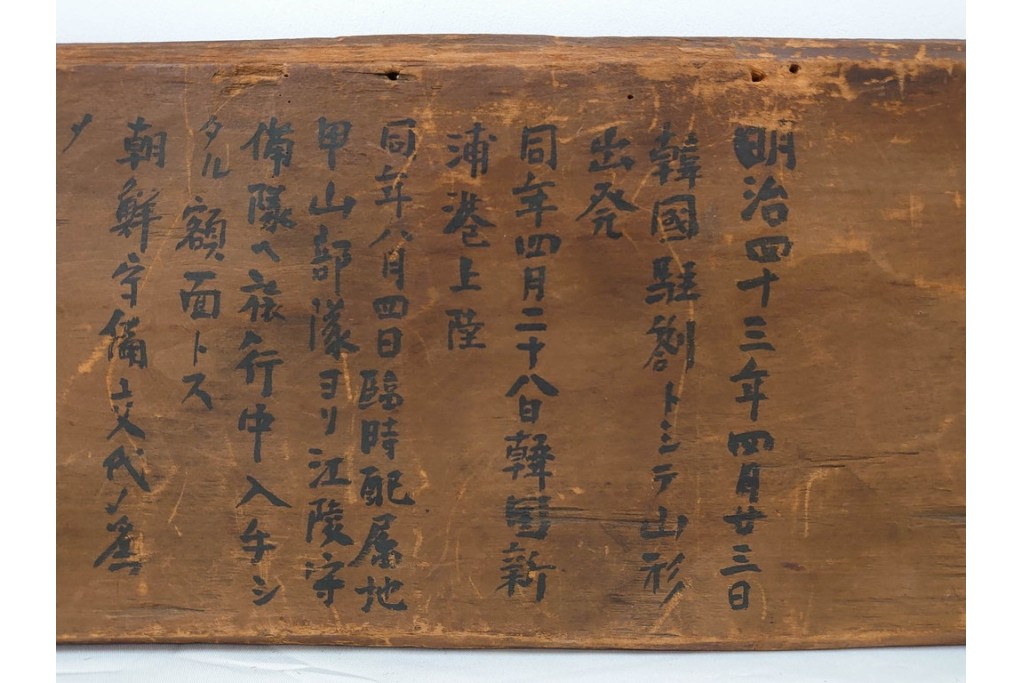 明治四十三年四月廿三日
韓國駐劄トシテ山形
出発
同年四月二十八日韓国新
浦港上陸
同年八月四日臨時配属地
甲山部隊ヨリ江陵守
備隊ヘ旅行中入手シ
タル額面トス
朝鮮守備交代ノ為
メ